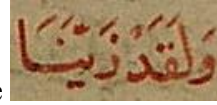 وَلَقَدْ زَيَّنَّا